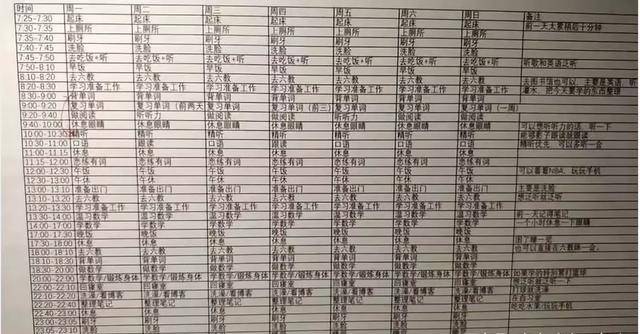 时间 周一 周二 周三 周四 周五 周六 周日 备注
7:25-7:30 起床 起床 起床 起床 起床 起床 起床 前一天太累稍后十分钟
7:30-7:35 上厕所 上厕所 上厕所 上厕所 上厕所 上厕所 上厕所
7:35-7:40 刷牙 刷牙 刷牙 刷牙 刷牙 刷牙 刷牙
7:40-7:45 洗脸 洗脸 洗脸 洗脸 洗脸 洗脸 洗脸
7:45-7:50 去吃饭+听 去吃饭+听 去吃饭+听 去吃饭+听 去吃饭+听 去吃饭+听 去吃饭+听 听歌和英语泛听
7:50-8:10 早饭 早饭 早饭 早饭 早饭 早饭 早饭
8:10-8:20 去六教 去六教 去六教 去六教 去六教 去六教 去六教 去图书馆也可以 主要是英语 听
8:20-8:30 学习准备工作 学习准备工作 学习准备工作 学习准备工作 学习准备工作 学习准备工作 学习准备工作 灌水 把今天要学的东西整理
8:30-9:00 背单词 背单词 背单词 背单词 背单词 背单词 背单词
9:00-9:20 复习单词 复习单词 复习单词（前两天 复习单词 复习单词（前三） 复习单词 复习单词（一周）
9:20-9:40 做阅读 听听力 做阅读 做阅读 做阅读
9:40-10:00 休息眼睛 休息眼睛 休息眼睛 休息眼睛 休息眼睛 休息眼睛 休息眼睛 可以想听听力的话，听一下
10:00-10:30 精听 精听 精听 精听 精听 精听 精听
10:30-11:00 口语 跟读 口语 跟读 口语 跟读 口语 精听优先 可以多听一会
11:00-11:15 休息 休息 休息 休息 休息 休息 休息
11:15-12:00 恋练有词 恋练有词 恋练有词 恋练有词 恋练有词 恋练有词 恋练有词
12:00-12:30 午饭 午饭 午饭 午饭 午饭 午饭 午饭 可以看看NBA，玩玩手机
12:30-13:00 午休 午休 午休 午休 午休 午休 午休
13:00-13:10 准备出门 准备出门 准备出门 准备出门 准备出门 准备出门 准备出门 主要是洗脸
13:10-13:20 去六教 去六教 去六教 去六教 去六教 去六教 去六教 想泛听就泛听
13:20-13:30 学习准备工作 学习准备工作 学习准备工作 学习准备工作 学习准备工作 学习准备工作 学习准备工作
13:30-14:00 温习数学 温习数学 温习数学 温习数学 温习数学 温习数学 温习数学 前一天记得笔记
14:00-17:00 学数学 学数学 学数学 学数学 学数学 学数学 学数学 一个小时休息一下眼睛
17:00-17:30 晚饭 晚饭 晚饭 晚饭 晚饭 晚饭 晚饭
17:30-18:00 休息 休息 休息 休息 休息 休息 休息 困了睡一觉
18:00-18:10 去六教 去六教 去六教 去六教 去六教 去六教 去六教
18:10-18:30 背单词 背单词 背单词 背单词 背单词 背单词 背单词
18:30-20:00 做数学 做数学 做数学 做数学 做数学 做数学 做数学
20:00-22:00 学数学/锻炼身体 学数学/锻炼身体 学数学/锻炼身体 学数学/锻炼身体 学数学/锻炼身体 学数学/锻炼身体 学数学/锻炼身体
回寝室 回寝室 回寝室 回寝室 回寝室 回寝室 回寝室 想泛听就听一下
22:10-22:20 洗澡/看博客 洗澡/看博客 洗澡/看博客 洗澡/看博客 洗澡/看博客 洗澡/看博客 洗澡/看博客
22:20-22:40 整理笔记 整理笔记 整理笔记 整理笔记 整理笔记 整理笔记 整理笔记 在自习室
22:40-23:00 休息 休息 休息 休息 休息 休息 休息 吃吃水果/玩玩手机
23:00-23:05 刷牙 刷牙 刷牙 刷牙 刷牙 刷牙 刷牙
23:05-23:10 洗脸 洗脸 洗脸 洗脸 洗脸 洗脸 洗脸